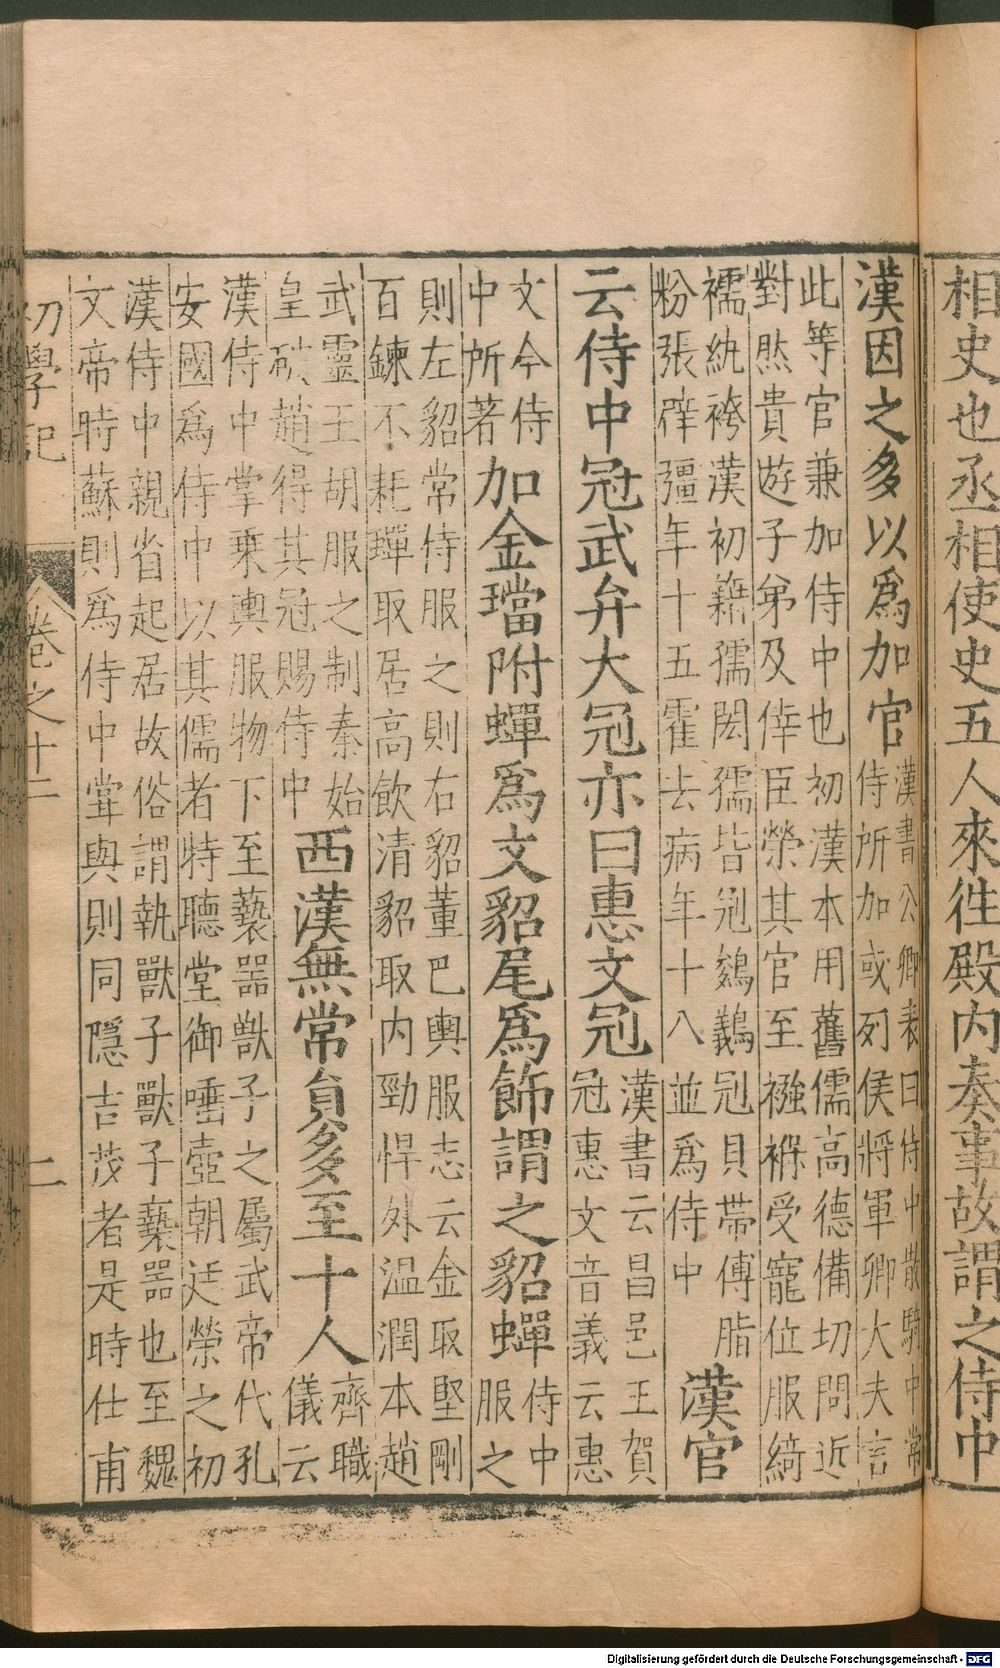 相史也丞相使史五人來往殿内奏事故謂之侍中
漢因之多以爲加官
漢書公卿表曰侍中散騎中常
侍所加或列侯將軍卿大夫言
此等官兼加侍中也初漢本用舊儒高德備切問近
對然貴遊子弟及倖臣榮其官至襁褓受寵位服綺
襦紈袴漢初籍孺閎孺皆冠鵕鸃冠貝帶傅脂
粉張辟彊年十五霍去病年十八並爲侍中
漢官
云侍中冠武弁大冠亦曰惠文冠
漢書云昌邑王賀
冠惠文音義云惠
文今侍
中所著
加金璫附蟬爲文貂尾爲飾謂之貂蟬
侍中
服之
則左貂常侍服之則右貂董巴輿服志云金取堅剛
百鍊不耗蟬取居高飲清貂取内勁悍外温潤本趙
武靈王胡服之制秦始
皇破趙得其冠賜侍中
西漢無常員多至十人
齊職
儀云
漢侍中掌乗輿服物下至褻器獸子之屬武帝代孔
安國爲侍中以其儒者特聽堂御唾壺朝廷榮之初
漢侍中親省起居故俗謂執獸子獸子褻器也至魏
文帝時蘇則爲侍中甞與則同隱吉茂者是時仕甫
初學記
卷之十二
二
Digitalisierung gefördert durch die Deutsche Forschungsgemeinschaft - DFG